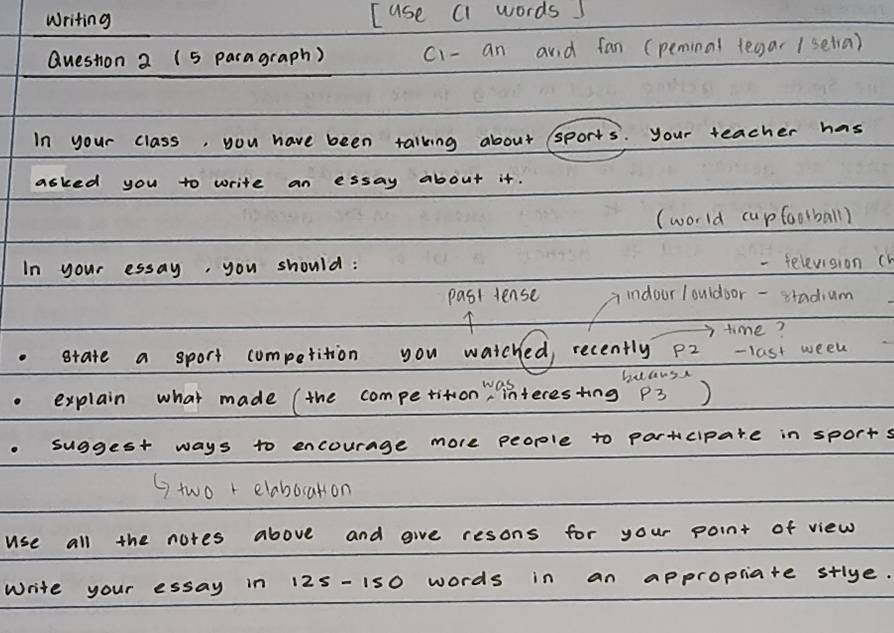 Writing [use C1 words]
Question 2 (5 paragraph) C1 - an avid fan (peminat tegar / setia)
In your class, you have been talking about sports. your teacher has
asked you to write an essay about it.
(world cup football)
In your essay, you should: - television ch
past tense indoor / outdoor - stadium
time?
• state a sport competition you watched, recently P2 - last week
was because
• explain what made (the competition interesting P3 )
• suggest ways to encourage more people to participate in sports
two + elaboration
use all the notes above and give resons for your point of view
write your essay in 125 - 150 words in an appropriate stlye.